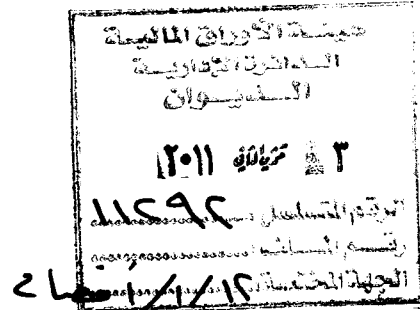 هيئة الأوراق المالية
الدائرة الإدارية
الديوان
٣ تشرين الثاني ٢٠١١
الرقم المتسلسل ١١٤٩٢
رقم الملف
الجهة المختصة ١٢/١/١